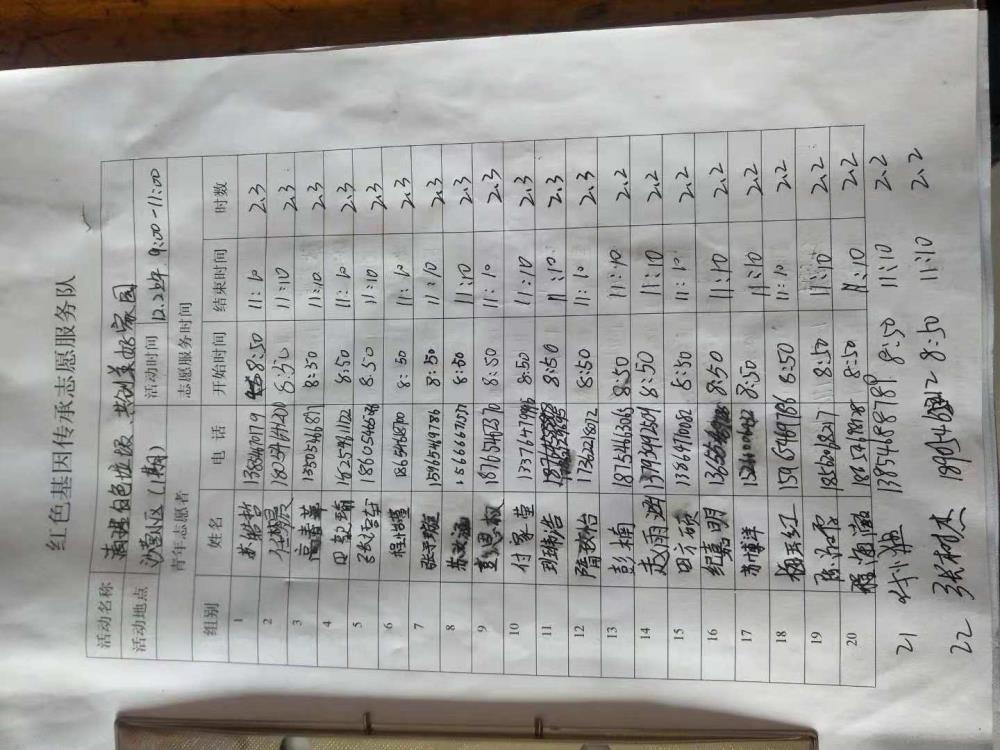 红色基因传承志愿服务队
活动名称 清理白色垃圾、共创美好家园
活动地点 沙营小区(1期) 活动时间 12.24 9:00-11:00
青年志愿者 志愿服务时间
组别 姓名 电话 开始时间 结束时间 时数
1 苏皓哲 8:50 11:10 2.3
2 8:50 11:10 2.3
3 高春華 13505461877 8:50 11:10 2.3
4 田乾瑜 18625461122 8:50 11:10 2.3
5 18605466516 8:50 11:10 2.3
6 8:50 11:10 2.3
7 15965469786 8:50 11:10 2.3
8 苏文涵 15666637077 8:50 11:10 2.3
9 彭思权 18715462370 8:50 11:10 2.3
10 付家莹 8:50 11:10 2.3
11 8:50 11:10 2.3
12 隋秋怡 8:50 11:10 2.3
13 彭楠 18754663063 8:50 11:10 2.2
14 赵雨泽 13793492504 8:50 11:10 2.2
15 田方硕 13864710062 8:50 11:10 2.2
16 纪嘉明 8:50 11:10 2.2
17 苏博洋 8:50 11:10 2.2
18 杨玉红 15965469786 8:50 11:10 2.2
19 8:50 11:10 2.2
20 8:50 11:10 2.2
21 13854688789 8:50 11:10 2.2
22 张树杰 8:50 11:10 2.2